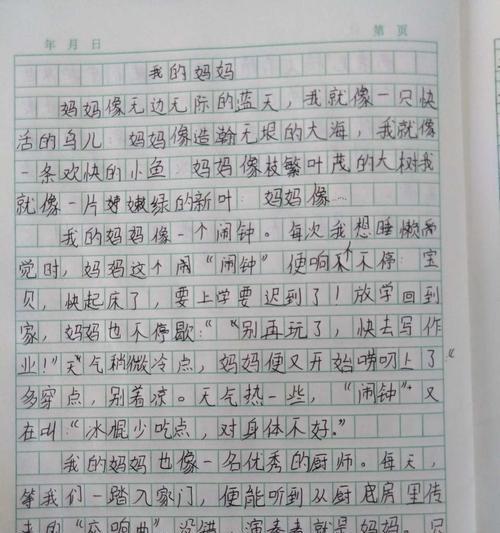 年 月 日 第 页
我的妈妈
妈妈像无边无际的蓝天，我就像一只快
活的鸟儿 妈妈像浩瀚无垠的大海，我就像
一条欢快的小鱼 妈妈像枝繁叶茂的大树我
就像一片嫩绿的新叶 妈妈像……
我的妈妈像一个闹钟。每次我想睡懒
觉时，妈妈这个闹“闹钟”便响个不停：宝
贝，快起床了，要上学要迟到了！放学回到
家，妈妈也不停歇：“别再玩了，快去写作
业！”天气稍微冷点，妈妈便又开始唠叨上了“
多穿点，别着凉。天气热一些，“闹钟”又
在叫：“冰棍少吃点，对身体不好。”
我的妈妈也像一名优秀的厨师。每天，
等我们一踏入家门，便能听到从厨房里传
来的“交响曲”没错，演奏者就是妈妈。只